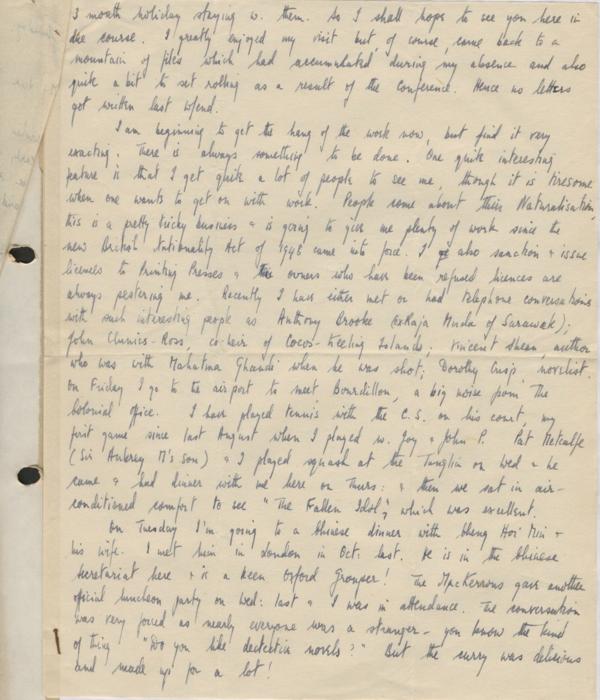 3 month holiday staying w. them. So I shall hope to see you here in
the course. I greatly enjoyed my visit but, of course, came back to a
mountain of files which had accumulated during my absence and also
quite a bit to set rolling as a result of the Conference. Hence no letters
got written last w/end.
I am beginning to get the hang of the work now, but find it very
exacting. There is always something to be done. One quite interesting
feature is that I get quite a lot of people to see me, though it is tiresome
when one wants to get on with work. People come about their Naturalisation,
this is a pretty tricky business & is going to give me plenty of work since the
new British Nationality Act of 1948 came into force. I also sanction & issue
licences to Printing Presses & the owners who have been refused licences are
always pestering me. Recently I have either met or had telephone conversations
with such interesting people as Anthony Brooke (exRaja Muda of Sarawak);
John Clunies-Ross, co-heir of Cocos-Keeling Islands; Vincent Shean, author
who was with Mahatma Ghandi when he was shot; Dorothy Crisp, novelist.
On Friday I go to the airport to meet Bourdillon, a big noise from the
Colonial Office. I have played tennis with the C.S. on his court, my
first game since last August when I played w. Joy & John P. Pat Metcalfe
(Sir Aubrey M's son) & I played squash at the Tanglin on Wed & he
came & had dinner with me here on Thurs: & then we sat in air-
conditioned comfort to see "The Fallen Idol", which was excellent.
On Tuesday I'm going to a Chinese dinner with Cheng Hoi Min &
his wife. I met him in London in Oct. last. He is in the Chinese
Secretariat here & is a keen Oxford Grouper! The MacKerrons gave another
official luncheon party on Wed: last & I was in attendance. The conversation
was very forced as nearly everyone was a stranger - you know the kind
of thing "Do you like detective novels?" But the curry was delicious
and made up for a lot!